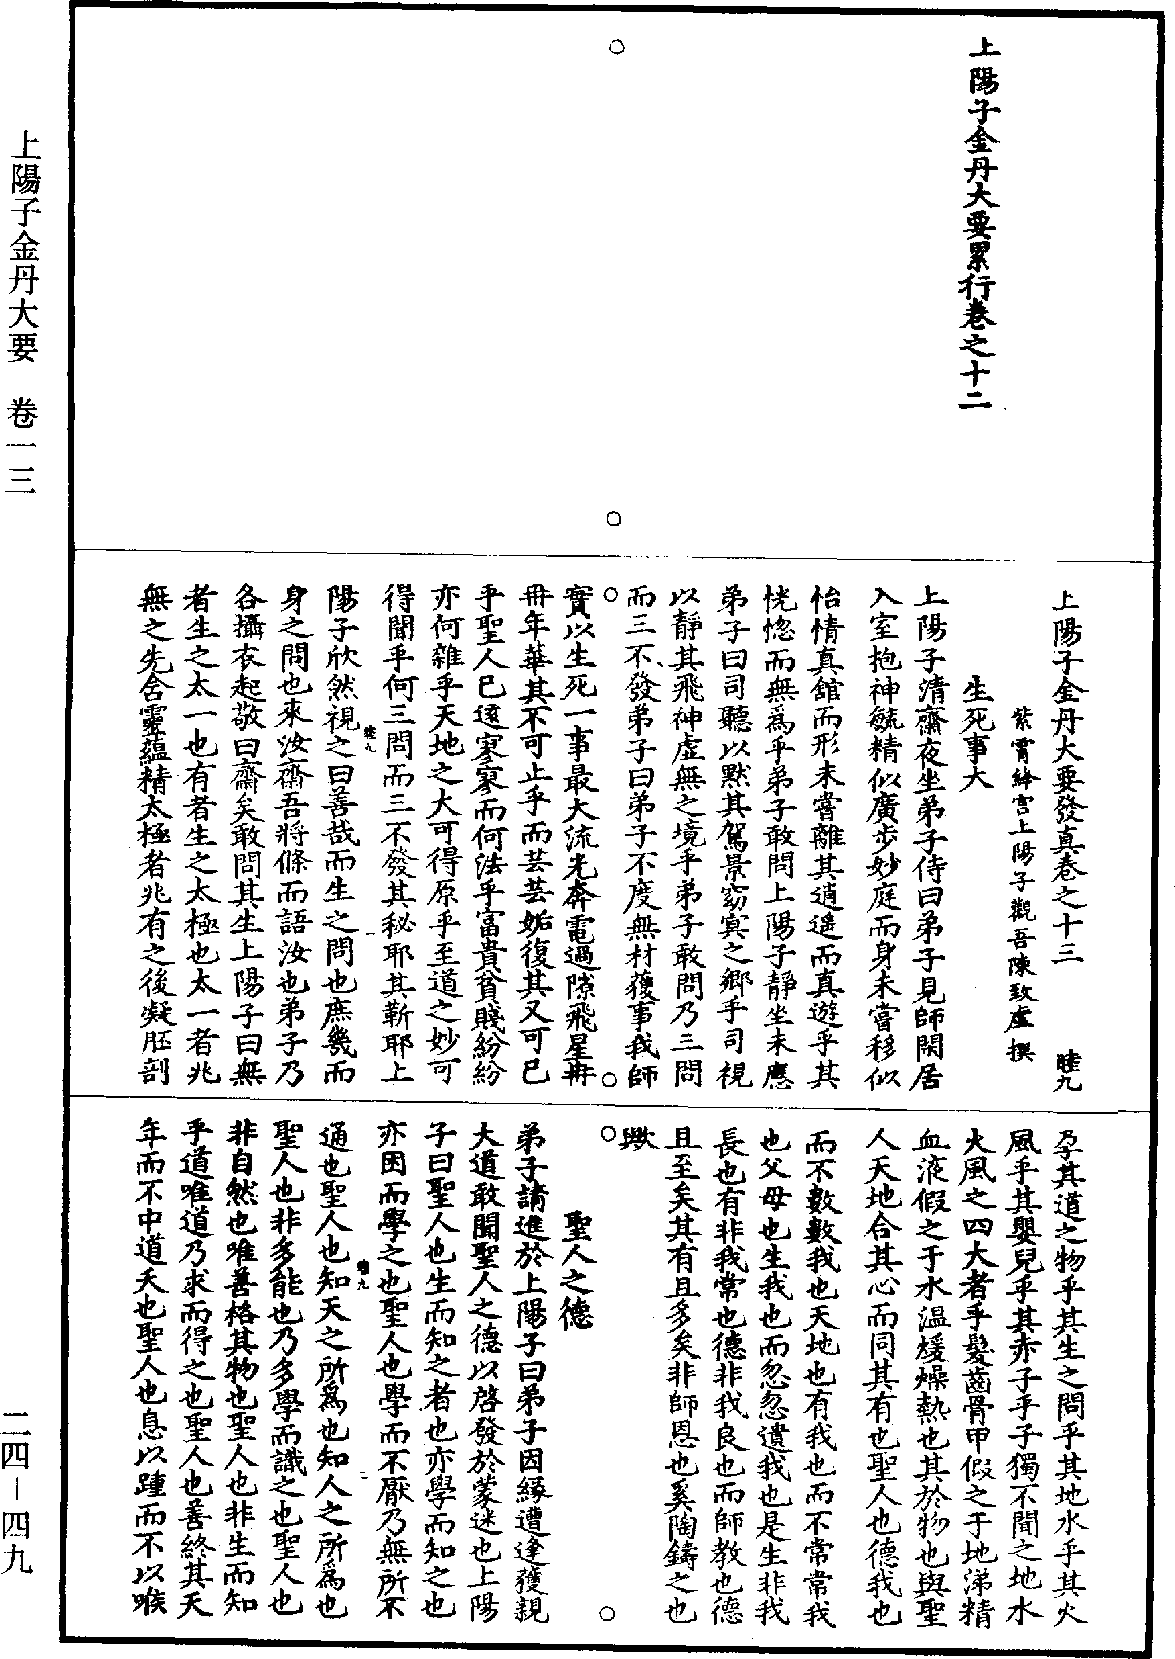 上陽子金丹大要　卷一三
二四－四九
上陽子金丹大要累行卷之十二
上陽子金丹大要發真卷之十三　睦九
紫霄絳宮上陽子觀吾陳致虛撰
生死事大
上陽子清齋夜坐弟子侍曰弟子見師閑居
入室抱神毓精似廣步妙庭而身未嘗移似
怡情真館而形未嘗離其逍遥而真遊乎其
恍惚而無爲乎弟子敢問上陽子靜坐未應
弟子曰司聽以默其駕景窈冥之鄉乎司視
以靜其飛神虛無之境乎弟子敢問乃三問
而三不發弟子曰弟子不度無材獲事我師
實以生死一事最大流光奔電過隙飛星冉
冉年華其不可止乎而芸芸姤復其又可已
乎聖人已遠寥寥而何法乎富貴貧賤紛紛
亦何雜乎天地之大可得原乎至道之妙可
得聞乎何三問而三不發其秘耶其靳耶上
陽子欣然視之曰善哉而生之問也庶幾而
睦九
身之問也來汝齋吾將條而語汝也弟子乃
各攝衣起敬曰齋矣敢問其生上陽子曰無
者生之太一也有者生之太極也太一者兆
無之先含靈蘊精太極者兆有之後凝胚剖
孕其道之物乎其生之問乎其地水乎其火
風乎其嬰兒乎其赤子乎子獨不聞之地水
火風之四大者乎髮齒骨甲假之于地涕精
血液假之于水溫煖燥熱也其於物也與聖
人天地合其心而同其有也聖人也德我也
而不數數我也天地也有我也而不常常我
也父母也生我也而忽忽遺我也是生非我
長也有非我常也德非我良也而師教也德
且至矣其有且多矣非師恩也奚陶鑄之也
歟
聖人之德
弟子請進於上陽子曰弟子因緣遭逢獲親
大道敢聞聖人之德以啓發於蒙迷也上陽
子曰聖人也生而知之者也亦學而知之也
亦困而學之也聖人也學而不厭乃無所不
通也聖人也知天之所爲也知人之所爲也
睦九
聖人也非多能也乃多學而識之也聖人也
非自然也唯善格其物也聖人也非生而知
乎道唯道乃求而得之也聖人也善終其天
年而不中道夭也聖人也息以踵而不以喉